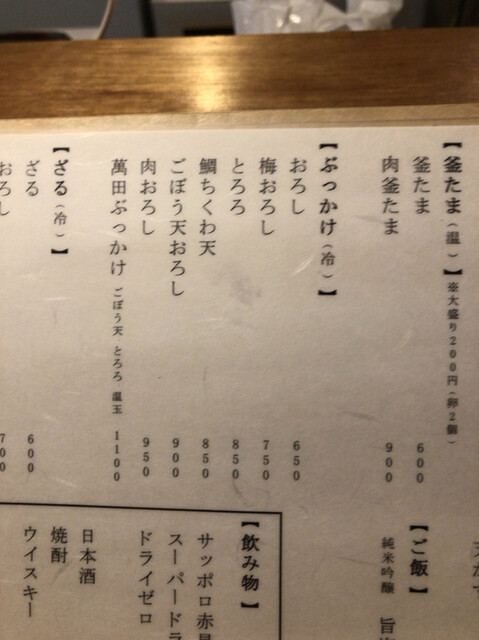 【釜たま（温）】※大盛り200円（卵2個）
釜たま 600
肉釜たま 900
【ぶっかけ（冷）】
おろし 650
梅おろし 750
とろろ 850
鯛ちくわ天 850
ごぼう天おろし 900
肉おろし 950
萬田ぶっかけ ごぼう天 とろろ 温玉 1100
【ざる（冷）】
ざる 600
おろし 700
【ご飯】
純米吟醸
【飲み物】
サッポロ赤星
スーパードラ
ドライゼロ
日本酒
焼酎
ウイスキー